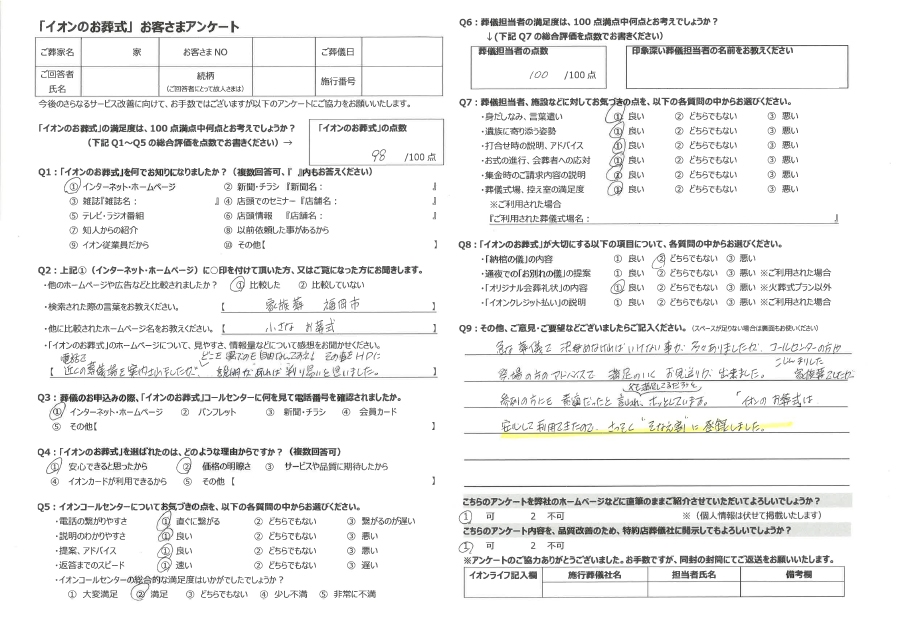 「イオンのお葬式」お客さまアンケート
ご葬家名 家 お客さまNO ご葬儀日
ご回答者氏名 続柄 (ご回答者にとって故人さまは) 施行番号
今後のさらなるサービス改善に向けて、お手数ではございますが以下のアンケートにご協力をお願いいたします。
「イオンのお葬式」の満足度は、100点満点中何点とお考えでしょうか?
(下記Q1~Q5の総合評価を点数でお書きください) →
「イオンのお葬式」の点数
98 /100点
Q1:「イオンのお葬式」を何でお知りになりましたか?(複数回答可、『 』内もお答えください)
① インターネット・ホームページ ② 新聞・チラシ 『新聞名: 』
③ 雑誌『雑誌名: 』 ④ 店頭でのセミナー『店舗名: 』
⑤ テレビ・ラジオ番組 ⑥ 店頭情報 『店舗名: 』
⑦ 知人からの紹介 ⑧ 以前依頼した事があるから
⑨ イオン従業員だから ⑩ その他【 】
Q2:上記①(インターネット・ホームページ)に○印を付けて頂いた方、又はご覧になった方にお聞きします。
・他のホームページや広告などと比較されましたか? ① 比較した ② 比較していない
・検索された際の言葉をお教えください。 【 家族葬 福岡市 】
・他に比較されたホームページ名をお教えください。【 小さなお葬式 】
・「イオンのお葬式」のホームページについて、見やすさ、情報量などについて感想をお聞かせください。
電話で
【 近くの葬儀場を案内されましたが、 説明があれば判り易いと思いました。 】
Q3:葬儀のお申込みの際、「イオンのお葬式」コールセンターに何を見て電話番号を確認されましたか。
① インターネット・ホームページ ② パンフレット ③ 新聞・チラシ ④ 会員カード
⑤ その他【 】
Q4:「イオンのお葬式」を選ばれたのは、どのような理由からですか?(複数回答可)
① 安心できると思ったから ② 価格の明瞭さ ③ サービスや品質に期待したから
④ イオンカードが利用できるから ⑤ その他【 】
Q5:イオンコールセンターについてお気づきの点を、以下の各質問の中からお選びください。
・電話の繋がりやすさ ① 直ぐに繋がる ② どちらでもない ③ 繋がるのが遅い
・説明のわかりやすさ ① 良い ② どちらでもない ③ 悪い
・提案、アドバイス ① 良い ② どちらでもない ③ 悪い
・返答までのスピード ① 速い ② どちらでもない ③ 遅い
・イオンコールセンターの総合的な満足度はいかがでしたでしょうか?
① 大変満足 ② 満足 ③ どちらでもない ④ 少し不満 ⑤ 非常に不満
Q6:葬儀担当者の満足度は、100点満点中何点とお考えでしょうか?
↓(下記Q7の総合評価を点数でお書きください)
葬儀担当者の点数 印象深い葬儀担当者の名前をお教えください
100 /100点
Q7:葬儀担当者、施設などに対してお気づきの点を、以下の各質問の中からお選びください。
・身だしなみ、言葉遣い ① 良い ② どちらでもない ③ 悪い
・遺族に寄り添う姿勢 ① 良い ② どちらでもない ③ 悪い
・打合せ時の説明、アドバイス ① 良い ② どちらでもない ③ 悪い
・お式の進行、会葬者への応対 ① 良い ② どちらでもない ③ 悪い
・集金時のご請求内容の説明 ① 良い ② どちらでもない ③ 悪い
・葬儀式場、控え室の満足度 ① 良い ② どちらでもない ③ 悪い
※ご利用された場合
『ご利用された葬儀式場名: 』
Q8:「イオンのお葬式」が大切にする以下の項目について、各質問の中からお選びください。
・「納棺の儀」の内容 ① 良い ② どちらでもない ③ 悪い
・通夜での「お別れの儀」の提案 ① 良い ② どちらでもない ③ 悪い ※ご利用された場合
・「オリジナル会葬礼状」の内容 ① 良い ② どちらでもない ③ 悪い ※火葬式プラン以外
・「イオンクレジット払い」の説明 ① 良い ② どちらでもない ③ 悪い ※ご利用された場合
Q9:その他、ご意見・ご要望などございましたらご記入ください。(スペースが足りない場合は裏面もお使いください)
急な葬儀で 決めなければいけない事が多々ありましたが、コールセンターの方や
斎場の方のアドバイスで 満足のいく お見送りが 出来ました。 家族葬でしたが
参列の方にも 素適だったと 言われ、ホッとしています。 「イオンのお葬式」は
安心して利用できたので、さっそく "そなえ割" に登録しました。
こちらのアンケートを弊社のホームページなどに直筆のままご紹介させていただいてよろしいでしょうか?
1 可 2 不可 ※(個人情報は伏せて掲載いたします)
こちらのアンケート内容を、品質改善のため、特約店葬儀社に開示してもよろしいでしょうか?
1 可 2 不可
※アンケートのご協力ありがとうございました。お手数ですが、同封の封筒にてご返送をお願いいたします。
イオンライフ記入欄 施行葬儀社名 担当者氏名 備考欄